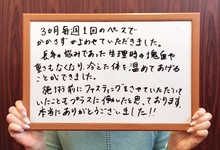 3ヵ月毎週1回のペースで
かかさずかよわせていただきました。
長年の悩みであった生理時の塊血や
重さもなくなり、冷えた体を温めてあげる
ことができました。
施術前にファスティングもさせていただいて
いたこともプラスに働いたと思っております。
本当にありがとうございました!!